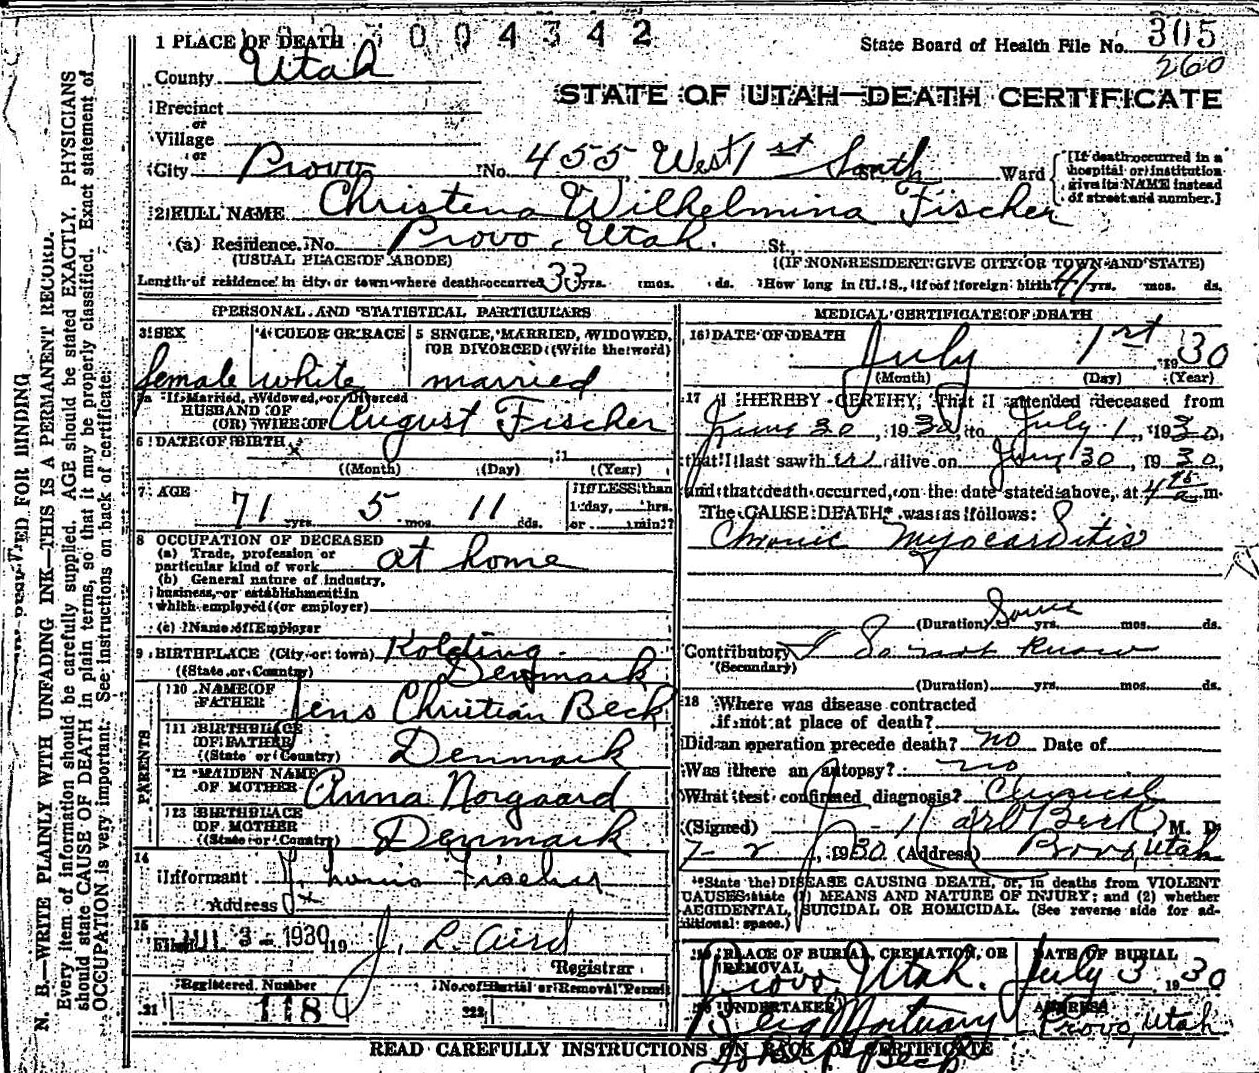 004342
1 PLACE OF DEATH
State Board of Health File No. 305
260
County Utah
STATE OF UTAH—DEATH CERTIFICATE
Precinct
or
Village
or
City Provo No. 455 West 1st South St. Ward
[If death occurred in a hospital or institution give its NAME instead of street and number.]
2 FULL NAME Christena Wilhelmina Fischer
(a) Residence. No. Provo, Utah. St.
(USUAL PLACE OF ABODE) (IF NONRESIDENT GIVE CITY OR TOWN AND STATE)
Length of residence in city or town where death occurred 33 yrs. mos. ds. How long in U. S., if of foreign birth 41 yrs. mos. ds.
PERSONAL AND STATISTICAL PARTICULARS
3 SEX female
4 COLOR OR RACE white
5 SINGLE, MARRIED, WIDOWED, OR DIVORCED (Write the word) married
5a If Married, Widowed, or Divorced
HUSBAND OF
(OR) WIFE OF August Fischer
6 DATE OF BIRTH x
(Month) (Day) (Year)
7 AGE 71 yrs. 5 mos. 11 ds.
If LESS than 1 day, hrs. or min.?
8 OCCUPATION OF DECEASED
(a) Trade, profession or particular kind of work at home
(b) General nature of industry, business, or establishment in which employed (or employer)
(c) Name of Employer
9 BIRTHPLACE (City or town) Kolding
(State or Country) Denmark
PARENTS
10 NAME OF FATHER Jens Christian Beck
11 BIRTHPLACE OF FATHER (State or Country) Denmark
12 MAIDEN NAME OF MOTHER Anna Norgaard
13 BIRTHPLACE OF MOTHER (State or Country) Denmark
14
Informant Fischer
Address x
15
Filed JUL 3 - 1930 19 J. L. Aird
Registrar
Registered Number No. of Burial or Removal Permit
21 118 22
MEDICAL CERTIFICATE OF DEATH
16 DATE OF DEATH July 1st 1930
(Month) (Day) (Year)
17 I HEREBY CERTIFY, That I attended deceased from
June 30, 1930, to July 1, 1930,
that I last saw her alive on June 30, 1930,
and that death occurred, on the date stated above, at 4 15 a m.
The CAUSE DEATH* was as follows:
Chronic Myocarditis
(Duration) Some yrs. mos. ds.
Contributory I Do not know
(Secondary)
(Duration) yrs. mos. ds.
18 Where was disease contracted
if not at place of death?
Did an operation precede death? no Date of
Was there an autopsy? no
What test confirmed diagnosis? Clinical
(Signed) J. Karl Beck, M. D.
7-2, 1930 (Address) Provo, Utah
*State the DISEASE CAUSING DEATH, or, in deaths from VIOLENT
CAUSES state (1) MEANS AND NATURE OF INJURY; and (2) whether
ACCIDENTAL, SUICIDAL OR HOMICIDAL. (See reverse side for additional space.)
19 PLACE OF BURIAL, CREMATION, OR REMOVAL Provo, Utah.
DATE OF BURIAL July 3, 1930
20 UNDERTAKER Berg Mortuary
ADDRESS Provo, Utah
READ CAREFULLY INSTRUCTIONS ON BACK OF CERTIFICATE
Beck
N. B.—WRITE PLAINLY WITH UNFADING INK—THIS IS A PERMANENT RECORD.
Every item of information should be carefully supplied. AGE should be stated EXACTLY. PHYSICIANS
should state CAUSE OF DEATH in plain terms, so that it may be properly classified. Exact statement of
OCCUPATION is very important. See instructions on back of certificate.
FOR BINDING